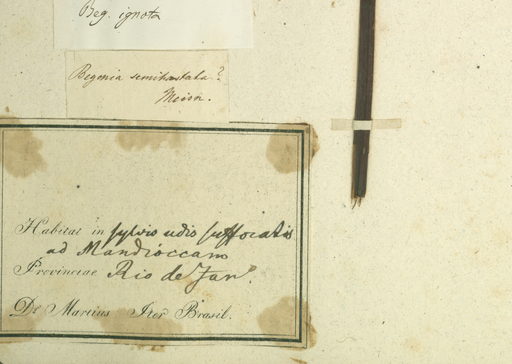 Beg. ignota
Begonia semihastata?
Meisn.
Habitat in sylvis udis suffocatis
ad Mandioccam
Provinciae Rio de Jan.
Dr Martius Iter Brasil.